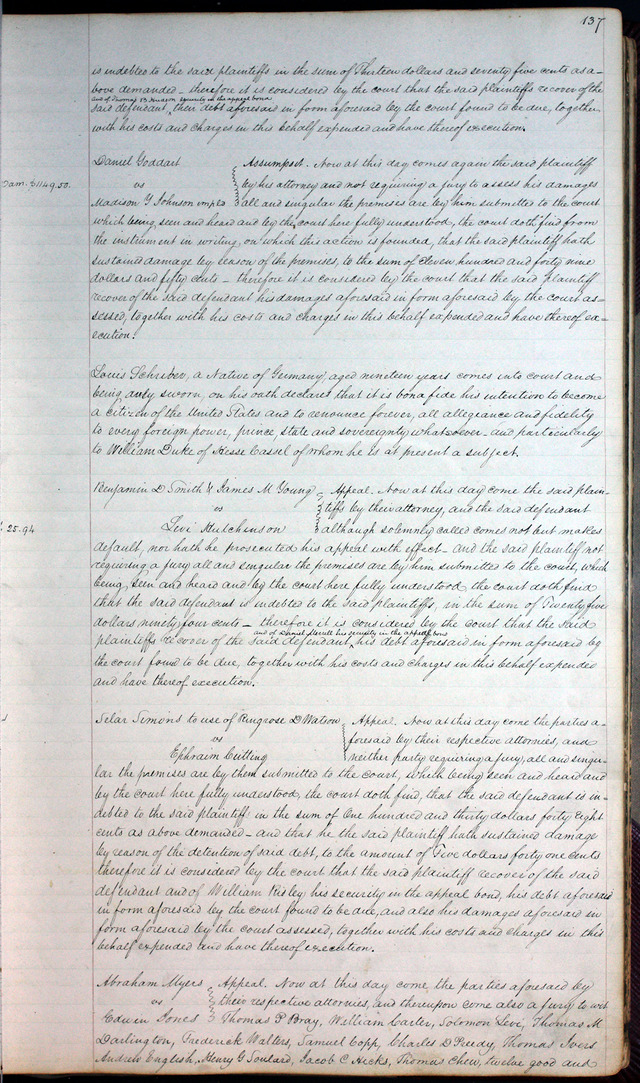 137
is indebted to the said plaintiffs in the sum of Thirteen dollars and seventy five cents as a-
bove demanded – therefore it is considered by the court that the said plaintiffs recover of the
and of Thomas B Hudson security in the appeal bond
said defendant, their debt aforesaid in form aforesaid by the court found to be due, together
with his costs and charges in this behalf expended and have thereof execution.
Daniel Goddart Assumpsit. Now at this day comes again the said plaintiff
Dam. $1149.50. vs by his attorney and not requiring a jury to assess his damages
Madison Y Johnson impld all and singular the premises are by him submitted to the court
which being seen and heard and by the court here fully understood, the court doth find from
the instrument in writing, on which this action is founded, that the said plaintiff hath
sustained damage by reason of the premises, to the sum of eleven hundred and forty nine
dollars and fifty cents – therefore it is considered by the court that the said plaintiff
recover of the said defendant his damages aforesaid in form aforesaid by the court as-
sessed, together with his costs and charges in this behalf expended and have thereof ex-
ecution.
Louis Schriber, a Native of Germany, aged nineteen years comes into court and
being duly sworn, on his oath declares that it is bona fide his intention to become
a citizen of the United States and to renounce forever, all allegiance and fidelity
to every foreign power, prince, state and sovereignty whatsoever – and particularly
to William Duke of Hesse Cassel of whom he is at present a subject.
Benjamin D Smith & James M Young Appeal. Now at this day come the said plain-
vs tiffs by their attorney, and the said defendant
25.94 Levi Hutchinson although solemnly called comes not but makes
default, nor hath he prosecuted his appeal with effect – and the said plaintiff not
requiring a jury all and singular the premises are by him submitted to the court, which
being seen and heard and by the court here fully understood, the court doth find
that the said defendant is indebted to the said plaintiffs, in the sum of Twenty five
dollars ninety four cents – therefore it is considered by the court that the said
and of Daniel his security in the appeal bond
plaintiffs recover of the said defendant, his debt aforesaid in form aforesaid by
the court found to be due, together with his costs and charges in this behalf expended
and have thereof execution.
Selar Simons to use of Ringrose D Watson Appeal. Now at this day come the parties a-
vs foresaid by their respective attornies, and
Ephraim Cutting neither party requiring a jury, all and singu-
lar the premises are by them submitted to the Court, which being seen and heard and
by the court here fully understood, the court doth find, that the said defendant is in-
debted to the said plaintiff in the sum of One hundred and thirty dollars forty eight
cents as above demanded – and that he the said plaintiff hath sustained damage
by reason of the detention of said debt, to the amount of Five dollars forty one cents
therefore it is considered by the court that the said plaintiff recover of the said
defendant and of William Risley his security in the appeal bond, his debt aforesaid
in form aforesaid by the court found to be due, and also his damages aforesaid in
form aforesaid by the court assessed, together with his costs and charges in this
behalf expended and have thereof execution.
Abraham Myers Appeal. Now at this day come the parties aforesaid by
vs their respective attornies, and thereupon come also a jury to wit
Edwin Jones Thomas P Bray, William Carter, Solomon Levi, Thomas M
Darlington, Frederick Walters, Samuel Copp, Charles D Peedy, Thomas Ivers
Andrew English, Henry G Soulard, Jacob C Hicks, Thomas Chew, twelve good and